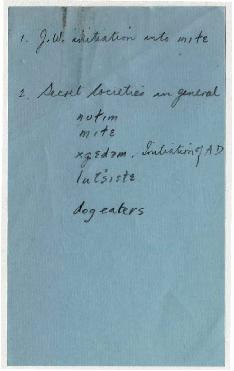 1. J.W. initiation into mitɛ
2. Secret Societies in general
nutim
mitɛ
xgedəm. Initiation of A D
lutsistɛ
dogeaters